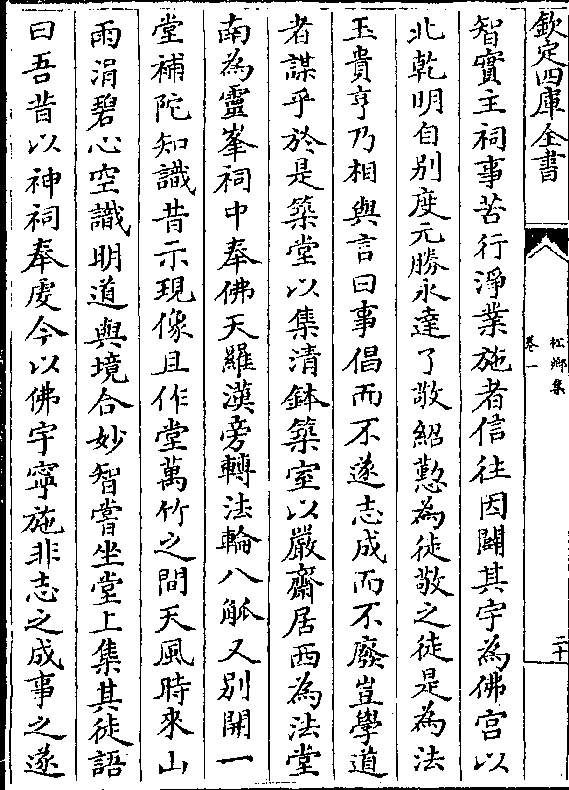 欽定四庫全書
松鄉集
卷一
二十
智實主祠事苦行淨業施者信往因闢其宇為佛宫以
北乾明自别度元勝永達了敬紹懃為徒敬之徒是為法
玉貴亨乃相與言曰事倡而不遂志成而不廢豈學道
者謀乎於是築堂以集清鉢築室以嚴齋居西為法堂
南為靈峯祠中奉佛天羅漢旁轉法輪八觚又别開一
堂補陀知識昔示現像且作堂萬竹之間天風時來山
雨涓碧心空識明道與境合妙智嘗坐堂上集其徒語
曰吾昔以神祠奉䖍今以佛宇寧施非志之成事之遂